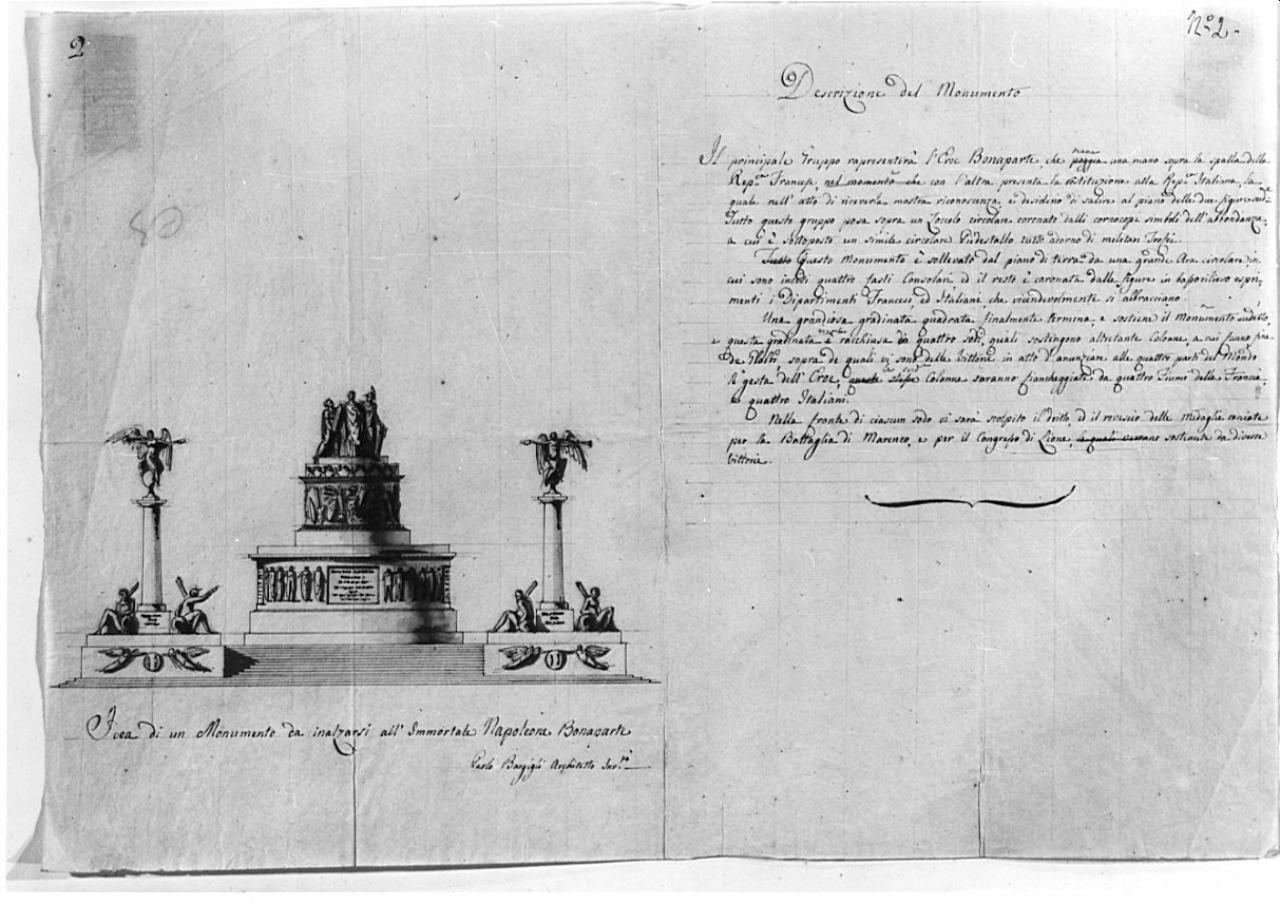 2
Nº 2.
Descrizione del Monumento
Il principale Gruppo rapresenterà l'Eroe Bonaparte, che tiene poggia una mano sopra la spalla della
Repca Francese, nel momento che con l'altra presenta la costituzione alla Repca Italiana, la
quale nell' atto di riceverla mostra riconoscenza, e desiderio di salire al piano delle due figure
Tutto questo gruppo posa sopra un Zoccolo circolare coronato dalli cornocopi simboli dell'abbondanza,
a cui è sottoposto un simile circolare Piedestallo tutto adorno di militari Trofei.
Tutto Questo Monumento è sollevato dal piano di terra da una grande Ara circolare in
cui sono incisi quattro fasti Consolari ed il resto è coronata dalle figure in bassorilievo espri-
menti i Dipartimenti Francesi, ed Italiani, che vicendevolmente si abbracciano.
Una grandiosa gradinata quadrata finalmente termina, e sostiene il Monumento
questa gradinata è racchiusa da quattro sodi, quali sostengono altretante Colonne, a cui fanno
sopra de quali vi sono delle Vittorie in atto d'anunziare alle quattro parti del Mondo
le gesta dell' Eroe, queste stesse Colonne saranno fiancheggiate da quattro Fiumi della Francia,
e quattro Italiani.
Nella fronte di ciascun sodo vi sarà scolpito il dritto, ed il rovescio delle medaglie coniate
per la Battaglia di Marenco, e per il Congresso di Lione, le quali sostenute da diverse
Vittorie.
Idea di un Monumento da inalzarsi all' Immortale Napoleone Bonaparte
Paolo Bargigli Architetto